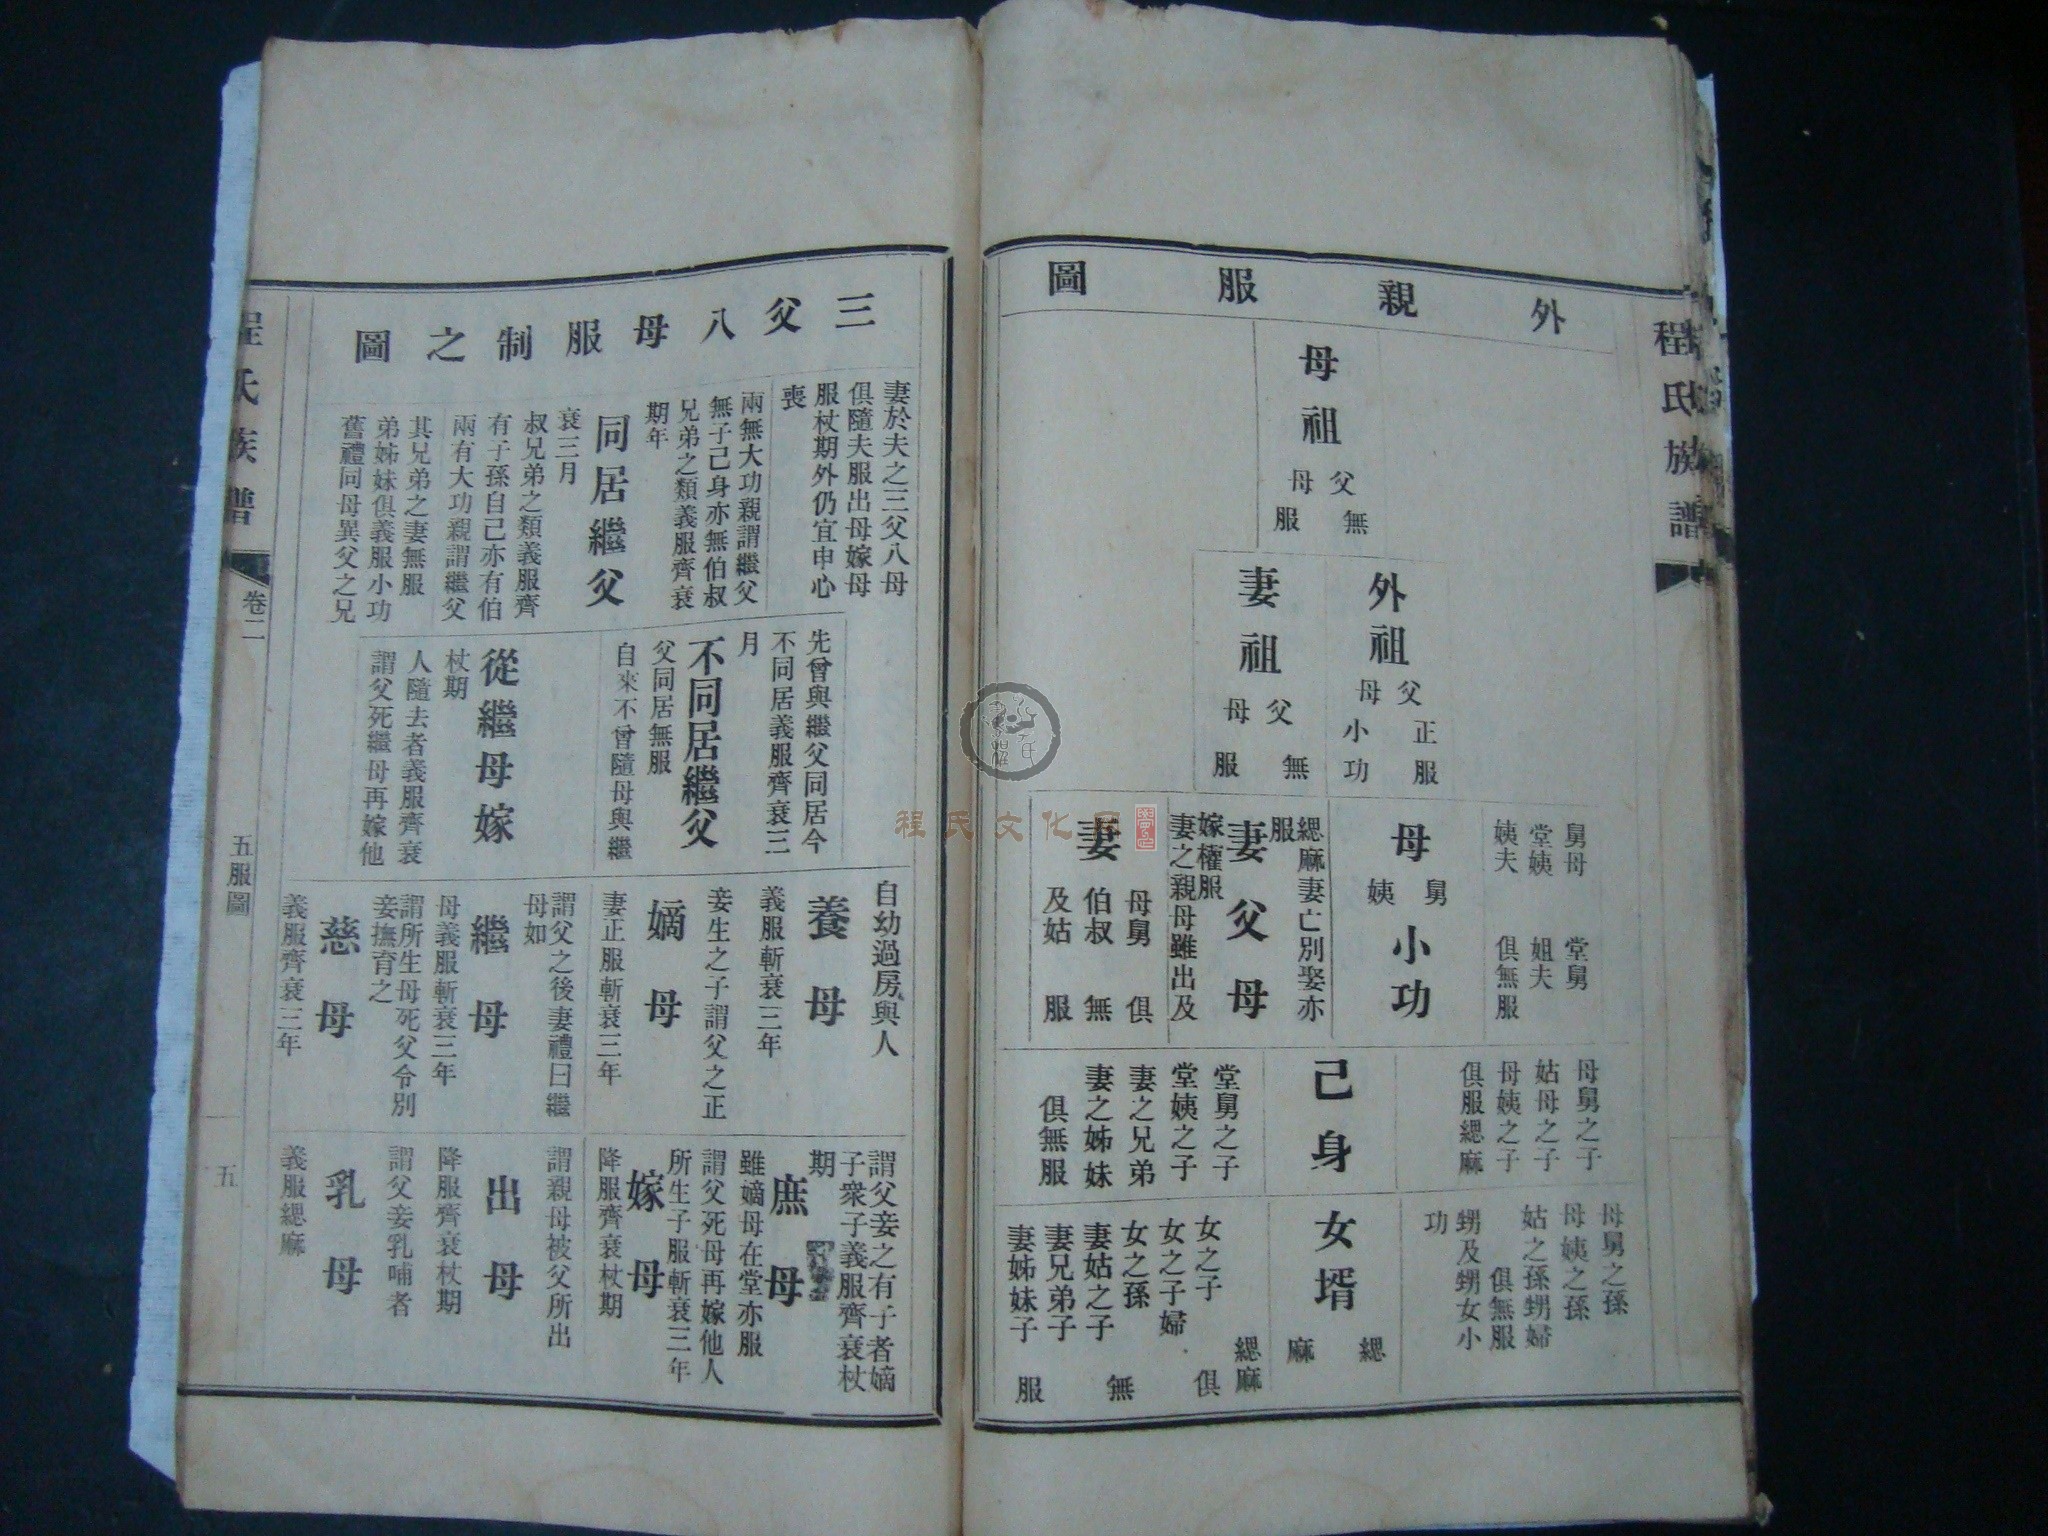 程氏族譜
外親服圖
母祖
父母
無服
外祖
父母
正服
小功
妻祖
父母
無服
舅母
堂姨
姨夫
堂舅
姐夫
俱無服
母
舅
姨
小功
緦麻妻亡別娶亦
服
妻父母
嫁權服
妻之親母雖出及
妻
母舅
伯叔
及姑
俱
無
服
母舅之子
姑母之子
母姨之子
俱服緦麻
己身
堂舅之子
堂姨之子
妻之兄弟
妻之姊妹
俱無服
母舅之孫
母姨之孫
姑之孫甥婦
俱無服
甥及甥女小
功
女壻
緦麻
緦麻
女之子
女之子婦
女之孫
妻姑之子
妻兄弟子
妻姊妹子
俱無服
三父八母服制之圖
妻於夫之三父八母
俱隨夫服出母嫁母
服杖期外仍宜申心
喪
兩無大功親謂繼父
無子己身亦無伯叔
兄弟之類義服齊衰
期年
同居繼父
衰三月
叔兄弟之類義服齊
有子孫自己亦有伯
兩有大功親謂繼父
其兄弟之妻無服
弟姊妹俱義服小功
舊禮同母異父之兄
先曾與繼父同居今
不同居義服齊衰三
月
不同居繼父
父同居無服
自來不曾隨母與繼
從繼母嫁
杖期
人隨去者義服齊衰
謂父死繼母再嫁他
自幼過房與人
養母
義服斬衰三年
妾生之子謂父之正
嫡母
妻正服斬衰三年
謂父之後妻禮曰繼
母如
繼母
母義服斬衰三年
謂所生母死父令別
妾撫育之
慈母
義服齊衰三年
謂父妾之有子者嫡
子衆子義服齊衰杖
期
庶母
雖嫡母在堂亦服
所生子服斬衰三年
謂父死母再嫁他人
嫁母
降服齊衰杖期
謂親母被父所出
出母
降服齊衰杖期
謂父妾乳哺者
乳母
義服緦麻
程氏族譜
卷二
五服圖
五
程氏文化网